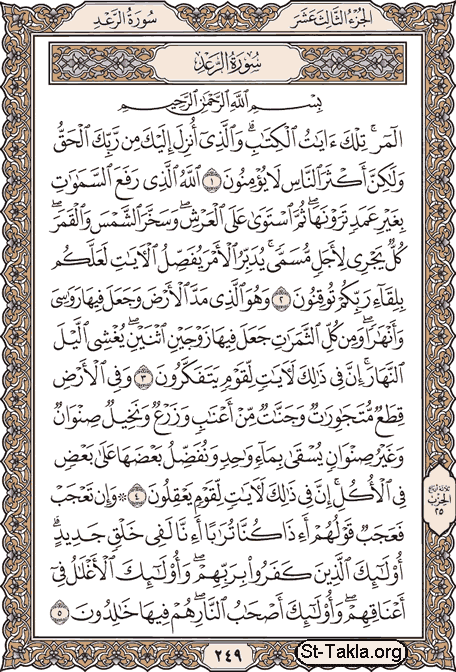 سُورَةُ الرَّعْدِ
الجُزْءُ الثَّالِثَ عَشَرَ
سُورَةُ الرَّعْدِ
بِسْمِ اللَّهِ الرَّحْمَٰنِ الرَّحِيمِ
الٓمٓرۚ تِلْكَ ءَايَٰتُ ٱلْكِتَٰبِۗ وَٱلَّذِىٓ أُنزِلَ إِلَيْكَ مِن رَّبِّكَ ٱلْحَقُّ
وَلَٰكِنَّ أَكْثَرَ ٱلنَّاسِ لَا يُؤْمِنُونَ ١ ٱللَّهُ ٱلَّذِى رَفَعَ ٱلسَّمَٰوَٰتِ
بِغَيْرِ عَمَدٍ تَرَوْنَهَاۖ ثُمَّ ٱسْتَوَىٰ عَلَى ٱلْعَرْشِۖ وَسَخَّرَ ٱلشَّمْسَ وَٱلْقَمَرَۖ
كُلٌّ يَجْرِى لِأَجَلٍ مُّسَمًّىۚ يُدَبِّرُ ٱلْأَمْرَ يُفَصِّلُ ٱلْءَايَٰتِ لَعَلَّكُم
بِلِقَآءِ رَبِّكُمْ تُوقِنُونَ ٢ وَهُوَ ٱلَّذِى مَدَّ ٱلْأَرْضَ وَجَعَلَ فِيهَا رَوَٰسِىَ
وَأَنْهَٰرًاۖ وَمِن كُلِّ ٱلثَّمَرَٰتِ جَعَلَ فِيهَا زَوْجَيْنِ ٱثْنَيْنِۖ يُغْشِى ٱلَّيْلَ
ٱلنَّهَارَۚ إِنَّ فِى ذَٰلِكَ لَءَايَٰتٍ لِّقَوْمٍ يَتَفَكَّرُونَ ٣ وَفِى ٱلْأَرْضِ
قِطَعٌ مُّتَجَٰوِرَٰتٌ وَجَنَّٰتٌ مِّنْ أَعْنَٰبٍ وَزَرْعٌ وَنَخِيلٌ صِنْوَانٌ
وَغَيْرُ صِنْوَانٍ يُسْقَىٰ بِمَآءٍ وَٰحِدٍ وَنُفَضِّلُ بَعْضَهَا عَلَىٰ بَعْضٍ
فِى ٱلْأُكُلِۚ إِنَّ فِى ذَٰلِكَ لَءَايَٰتٍ لِّقَوْمٍ يَعْقِلُونَ ٤ ۞ وَإِن تَعْجَبْ
فَعَجَبٌ قَوْلُهُمْ أَءِذَا كُنَّا تُرَٰبًا أَءِنَّا لَفِى خَلْقٍ جَدِيدٍۗ
أُو۟لَٰٓئِكَ ٱلَّذِينَ كَفَرُوا۟ بِرَبِّهِمْۖ وَأُو۟لَٰٓئِكَ ٱلْأَغْلَٰلُ فِىٓ
أَعْنَاقِهِمْۖ وَأُو۟لَٰٓئِكَ أَصْحَٰبُ ٱلنَّارِۖ هُمْ فِيهَا خَٰلِدُونَ ٥
ثلاثة أرباع
الحزب
٢٥
٢٤٩
St-Takla.org